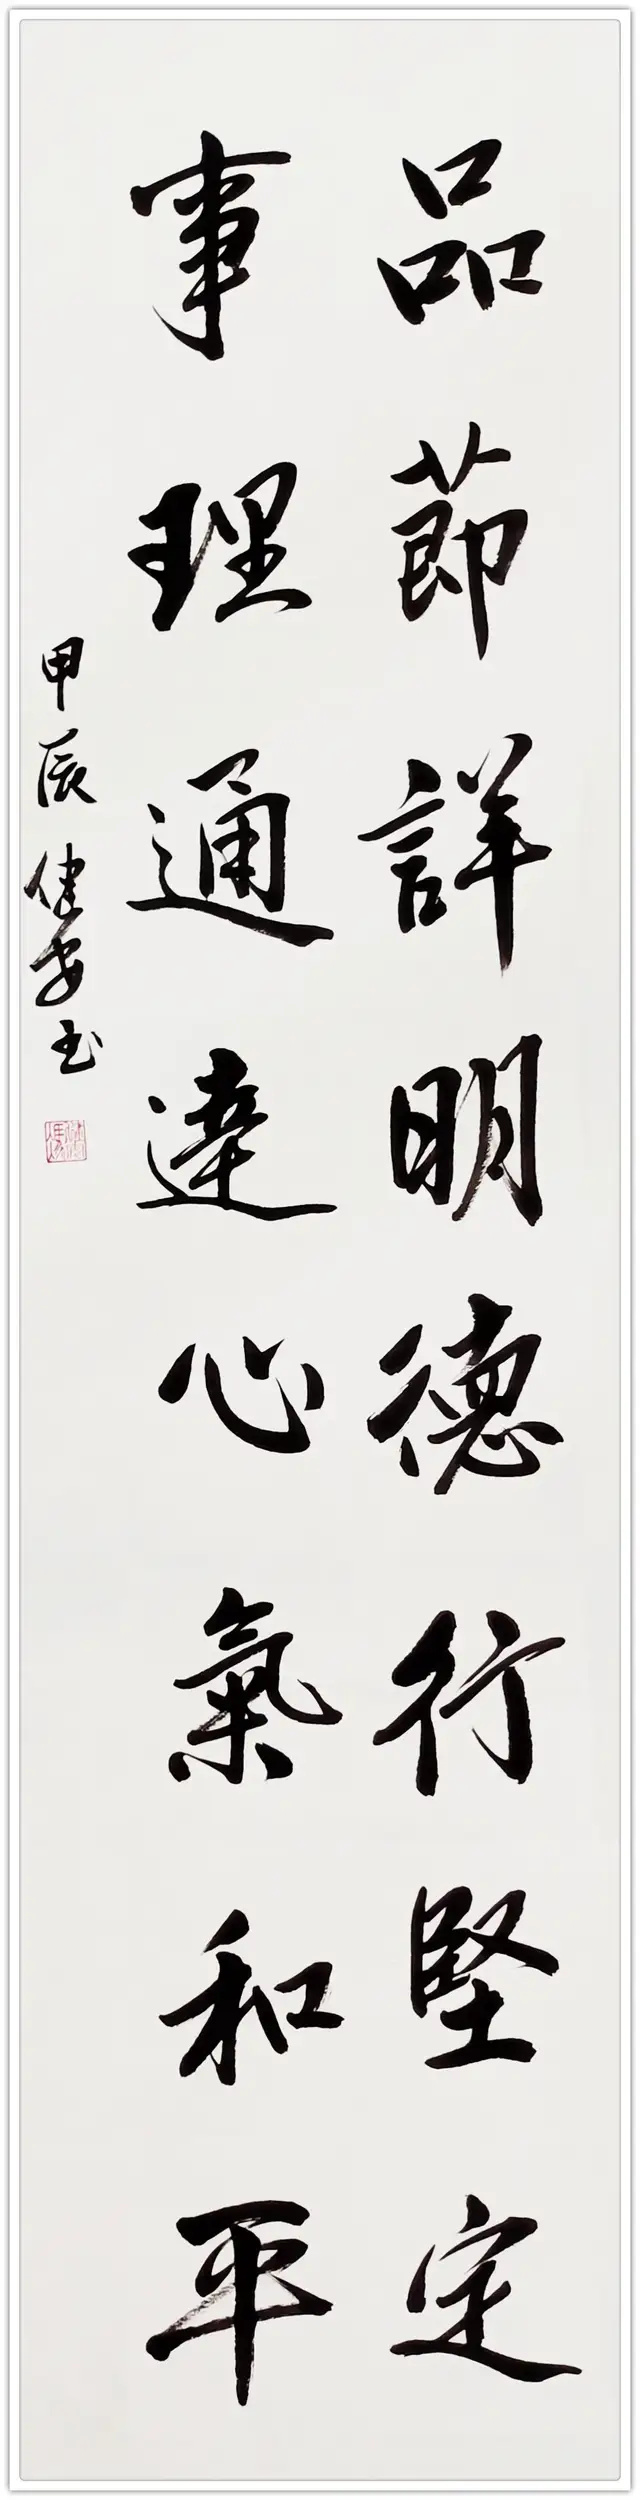 品節詳明德行堅定
事理通達心氣和平
甲辰健安书